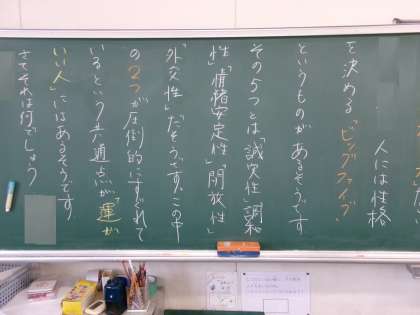 人には性格
を決める「ビッグファイブ」
というものがあるそうです
その5つとは「誠実性」「調和
性」「情緒安定性」「開放性」
「外交性」だそうです。この中
の2つが圧倒的にすぐれて
いるという共通点が"運が
いい人"にはあるそうです
さてそれは何でしょう